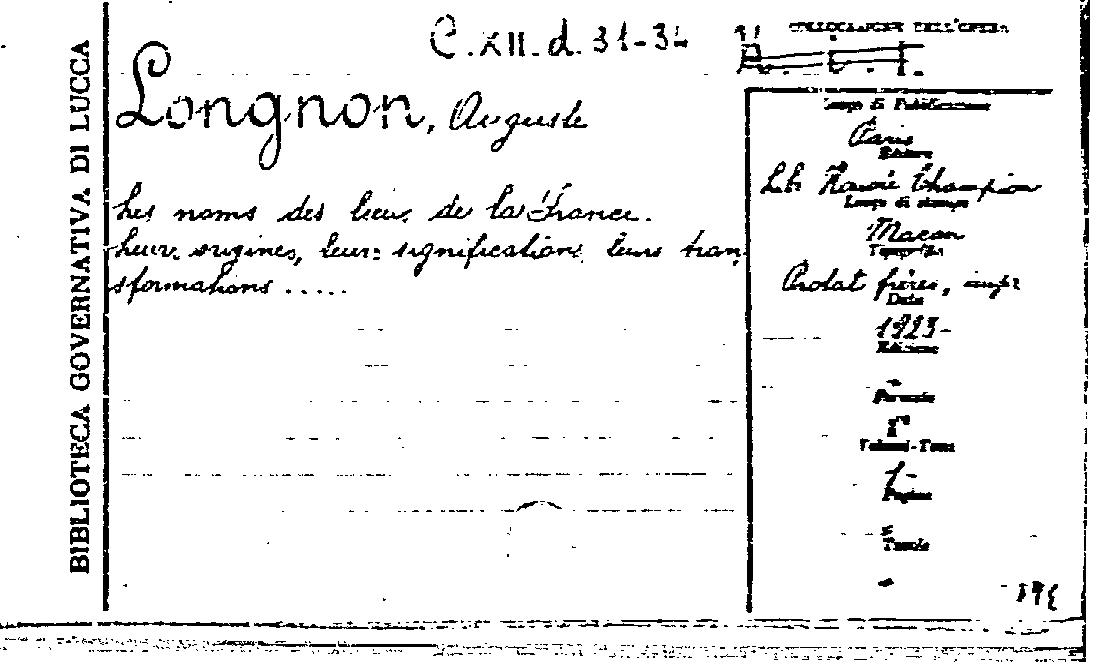 BIBLIOTECA GOVERNATIVA DI LUCCA
C. XII. d. 31-34
Longnon, Auguste
Les noms des lieux de la France.
Leurs origines, leurs significations, leurs tran,
sformations .....
COLLOCAZIONE DELL'OPERA
Luogo di Pubblicazione
Paris
Editore
Lib. Honoré Champion
Luogo di stampa
Macon
Tipografia
Protat frères, impr
Data
1923-
Edizione
-
Formato
Volumi-Tomi
1-
Pagine
Tavole
-